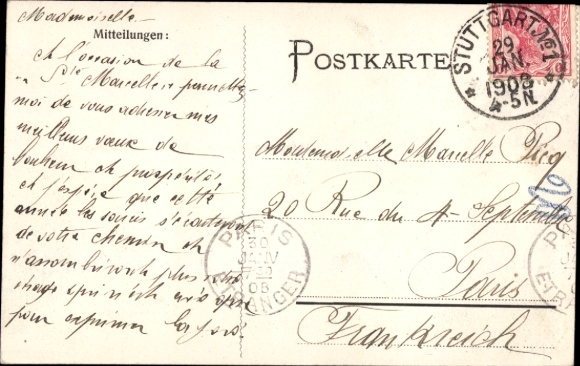 Mademoiselle
Mitteilungen:
A l'occasion de la
Ste Marcelle, permettez
moi de vous adresser mes
meilleurs vœux de
bonheur et prospérité,
et j'espère que cette
année les soucis s'écarteront
de votre chemin et
n'assombriront plus votre
pour exprimer la joie.
POSTKARTE
STUTTGART Nº1
29
JAN.
1908
4-5N.
Mademoiselle Marcelle Picq
20 Rue du 4-Septembre
Paris
Frankreich
PARIS
30
JANV
08
ETRANGER